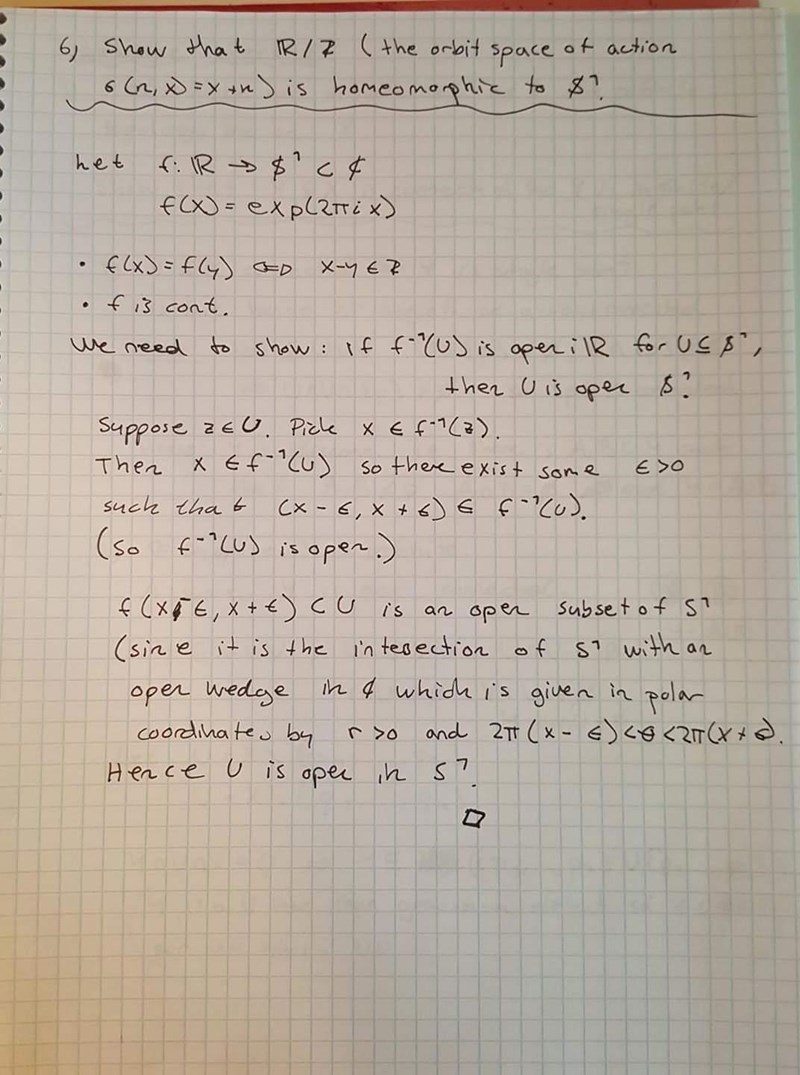 6) Show that ℝ/ℤ (the orbit space of action
σ(n,x)=x+n) is homeomorphic to $¹.
Let f: ℝ → $¹ ⊂ ₵
f(x) = exp(2πix)
• f(x)=f(y) ⇔ x-y ∈ ℤ
• f is cont.
We need to show: if f⁻¹(U) is open i ℝ for U ⊆ $¹,
then U is open $¹.
Suppose z ∈ U. Pick x ∈ f⁻¹(z).
Then x ∈ f⁻¹(U) so there exist some ϵ >0
such that (x - ϵ, x + ϵ) ∈ f⁻¹(U).
(So f⁻¹(U) is open.)
f(x-ϵ, x+ϵ) ⊂ U is an open subset of S¹
(sine it is the intesection of S¹ with an
open wedge in ₵ which is given in polar
coordinates by r >0 and 2π(x - ϵ)<θ<2π(x+ϵ).
Hence U is open in S¹.
□